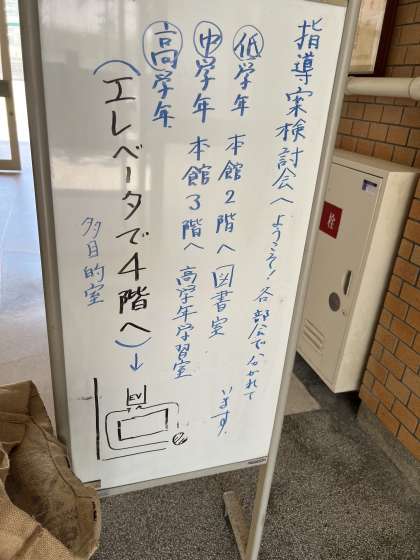 指導案検討会へようこそ!各部会で分かれて
います。
低学年 本館2階へ 図書室
中学年 本館3階へ 高学年学習室
高学年
(エレベータで4階へ)↓
多目的室
EV
栓